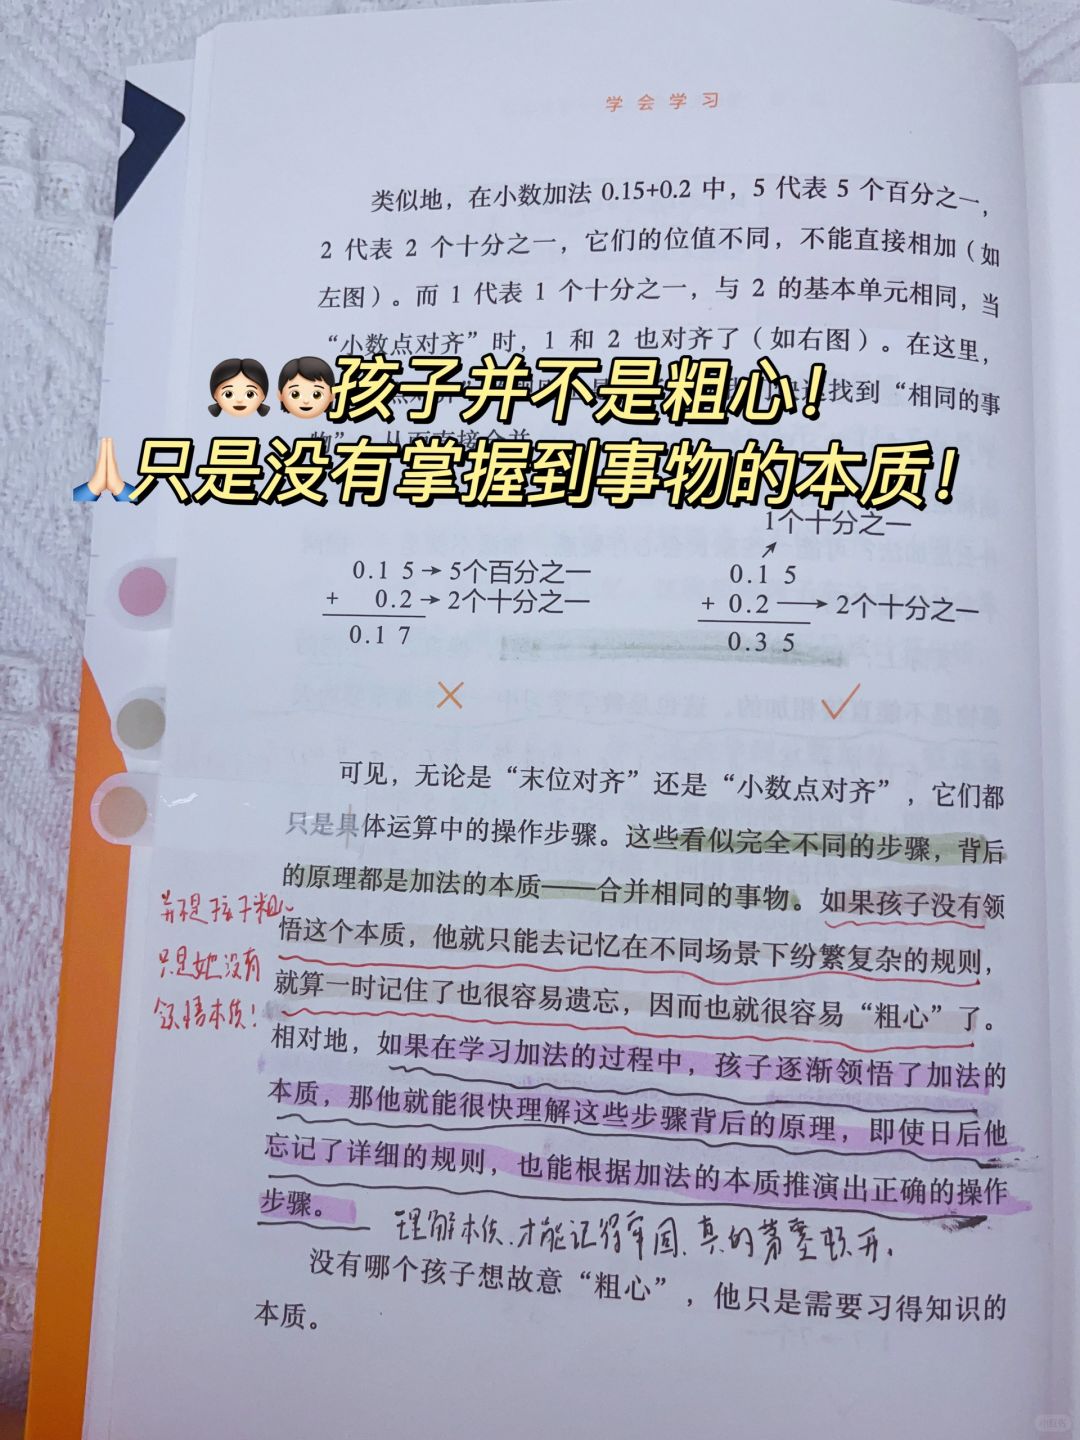 学会学习
类似地，在小数加法 0.15+0.2 中，5 代表 5 个百分之一，
2 代表 2 个十分之一，它们的位值不同，不能直接相加（如
左图）。而 1 代表 1 个十分之一，与 2 的基本单元相同，当
“小数点对齐”时，1 和 2 也对齐了（如右图）。在这里，
找到“相同的事
孩子并不是粗心！
只是没有掌握到事物的本质！
1个十分之一
0.15→5个百分之一
+ 0.2→2个十分之一
0.17
0.15
+ 0.2→2个十分之一
0.35
× ✓
可见，无论是“末位对齐”还是“小数点对齐”，它们都
只是具体运算中的操作步骤。这些看似完全不同的步骤，背后
的原理都是加法的本质——合并相同的事物。如果孩子没有领
悟这个本质，他就只能去记忆在不同场景下纷繁复杂的规则，
就算一时记住了也很容易遗忘，因而也就很容易“粗心”了。
相对地，如果在学习加法的过程中，孩子逐渐领悟了加法的
本质，那他就能很快理解这些步骤背后的原理，即使日后他
忘记了详细的规则，也能根据加法的本质推演出正确的操作
步骤。
并不是孩子粗心
只是她没有
领悟本质！
理解本质，才能记得牢固，真的茅塞顿开。
没有哪个孩子想故意“粗心”，他只是需要习得知识的
本质。
小红书